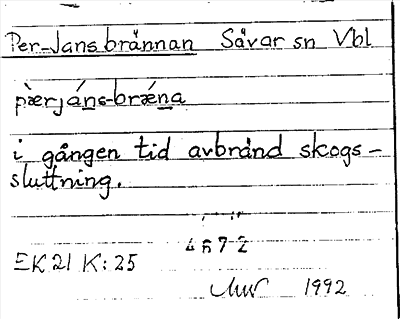 Per-Jans brännan Sävar sn Vbl
pæ̀rjáns-brǽna
i gången tid avbränd skogs-
sluttning.
4672
EK 21 K: 25
1992